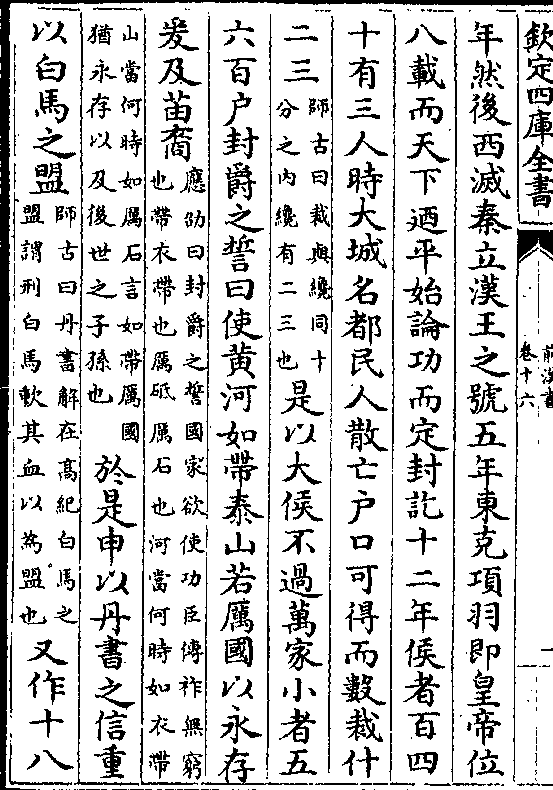 欽定四庫全書
前漢書
卷十六
年然後西滅秦立漢王之號五年東克項羽即皇帝位
八載而天下迺平始論功而定封訖十二年侯者百四
十有三人時大城名都民人散亡户口可得而數裁什
二三師古曰裁與纔同十分之内纔有二三也是以大侯不過萬家小者五
六百户封爵之誓曰使黄河如帶泰山若厲國以永存
爰及苗裔應劭曰封爵之誓國家欲使功臣傳祚無窮也帶衣帶也厲砥厲石也河當何時如衣帶
山當何時如厲石言如帶厲國猶永存以及後世之子孫也於是申以丹書之信重
以白馬之盟師古曰丹書解在髙紀白馬之盟謂刑白馬歃其血以為盟也又作十八